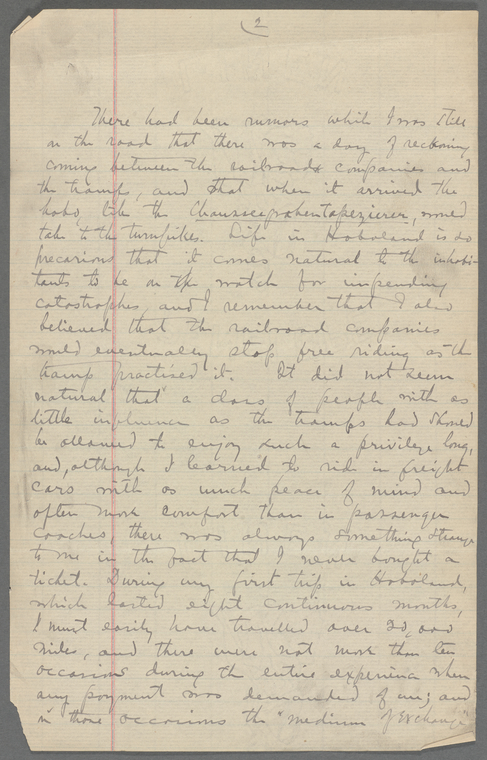 2
There had been rumors while I was still
on the road that there was a day of reckoning
coming between the railroads companies and
the tramp, and that when it arrived the
hobo, like the Chausseegrabentapezierer, would
take to the turnpikes. Life in Hoboland is so
precarious that it comes natural to the inhabi-
tants to be on the watch for impending
catastrophes, and I remember that I also
believed that the railroad companies
would eventually stop free riding as the
tramp practised it. It did not seem
natural that a class of people with as
little influence as the tramps had should
be allowed to enjoy such a privilege long,
and, although I learned to ride in freight
cars with as much peace of mind and
often more comfort than in passenger
coaches, there was always something strange
to me in the fact that I never bought a
ticket. During my first trip in Hoboland,
which lasted eight continuous months,
I must easily have travelled over 20,000
miles, and there were not more than ten
occasions during the entire experience when
any payment was demanded of me; and
in those occasions the "medium of exchange